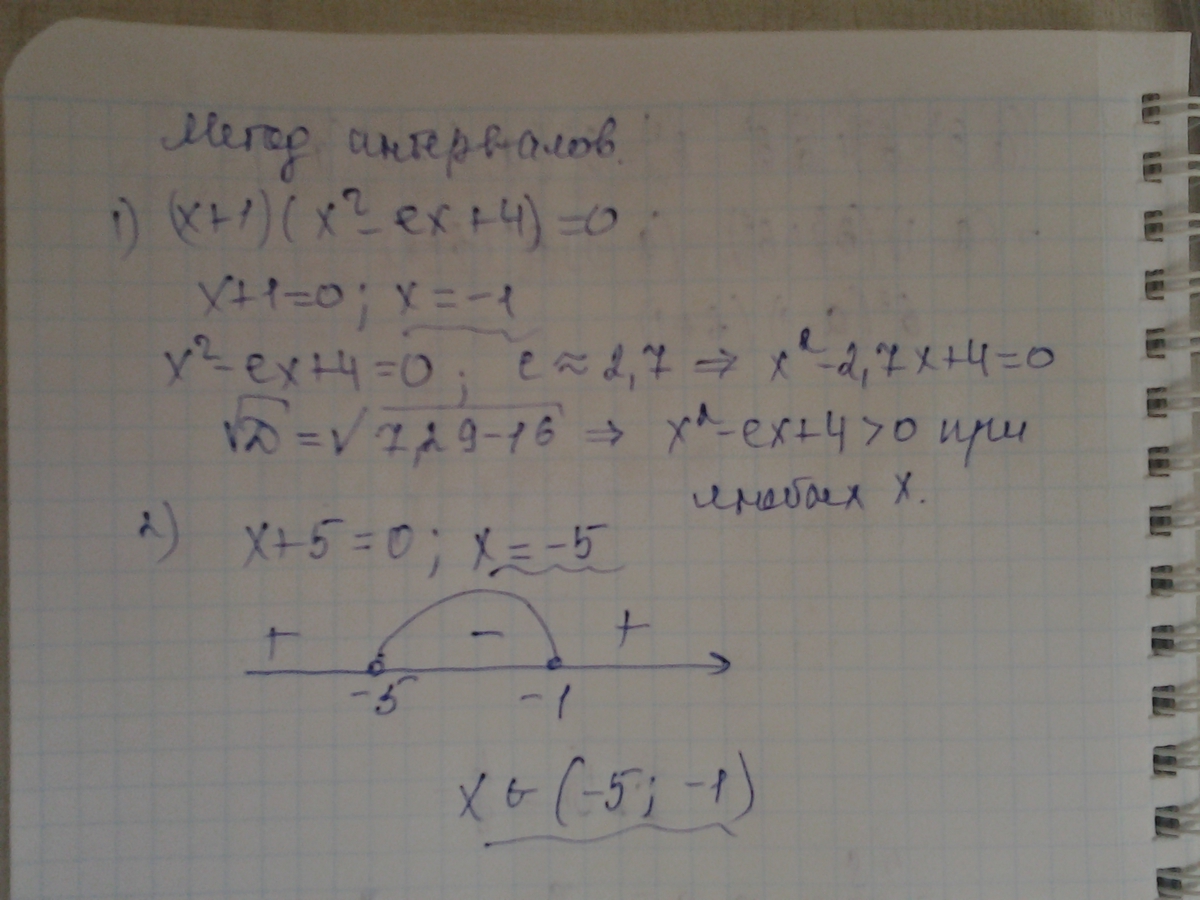 Метод интервалов.
1) (x+1)(x²-ex+4)=0;
x+1=0; x=-1
x²-ex+4=0; e≈2,7 ⇒ x²-2,7x+4=0
√D=√7,29-16 ⇒ x²-ex+4>0 при
любых x.
2) x+5=0; x=-5
+ - +
-5 -1
x∈(-5; -1)